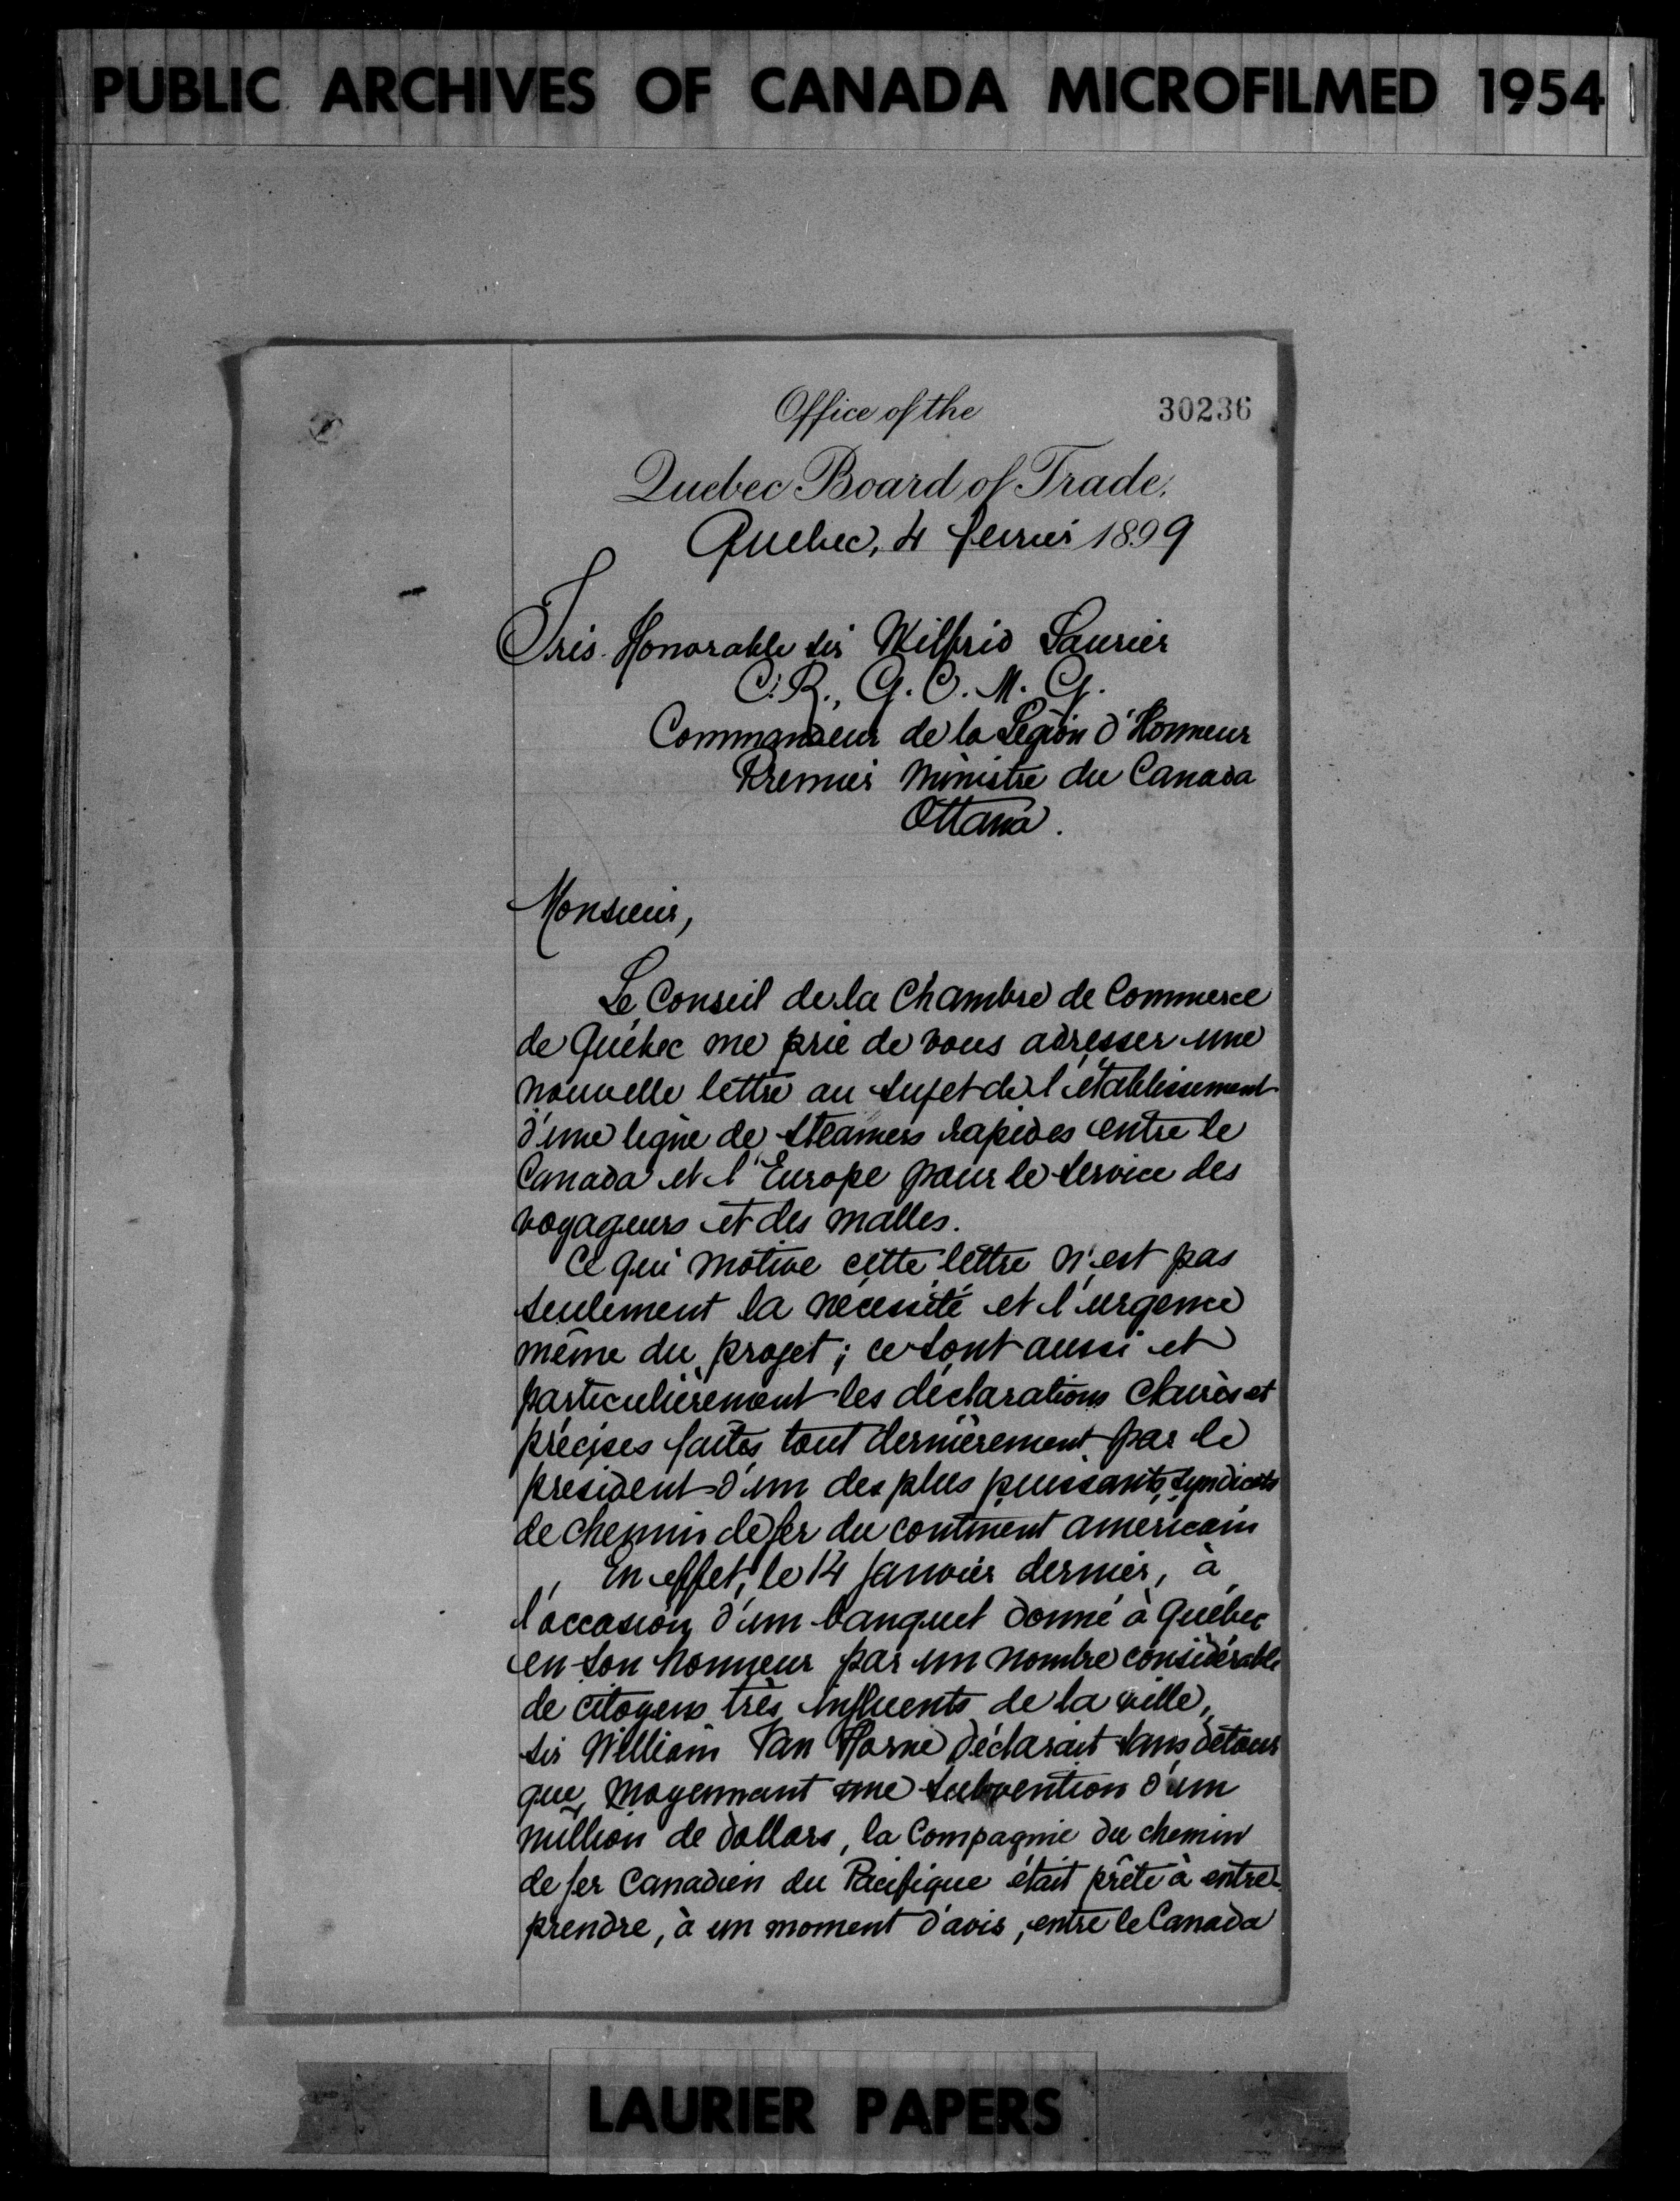 PUBLIC ARCHIVES OF CANADA MICROFILMED 1954
Office of the
30236
Quebec Board of Trade,
Quebec, 4 février 1899
Très Honorable sir Wilfrid Laurier
C.R., G.C.M.G.
Commandeur de la Légion d'Honneur
Premier Ministre du Canada
Ottawa.
Monsieur,
Le Conseil de la Chambre de Commerce
de Québec me prie de vous adresser une
nouvelle lettre au sujet de l'établissement
d'une ligne de steamers rapides entre le
Canada et l'Europe pour le service des
voyageurs et des malles.
Ce qui motive cette lettre n'est pas
seulement la nécessité et l'urgence
même du projet; ce sont aussi et
particulièrement les déclarations claires et
précises faites tout dernièrement par le
président d'un des plus puissants syndicats
de chemin de fer du continent américain
En effet, le 14 janvier dernier, à
l'occasion d'un banquet donné à Québec
en son honneur par un nombre considérable
de citoyens très influents de la ville,
sir William Van Horne déclarait sans détour
que, moyennant une subvention d'un
million de dollars, la Compagnie du chemin
de fer Canadien du Pacifique était prête à entre-
prendre, à un moment d'avis, entre le Canada
LAURIER PAPERS